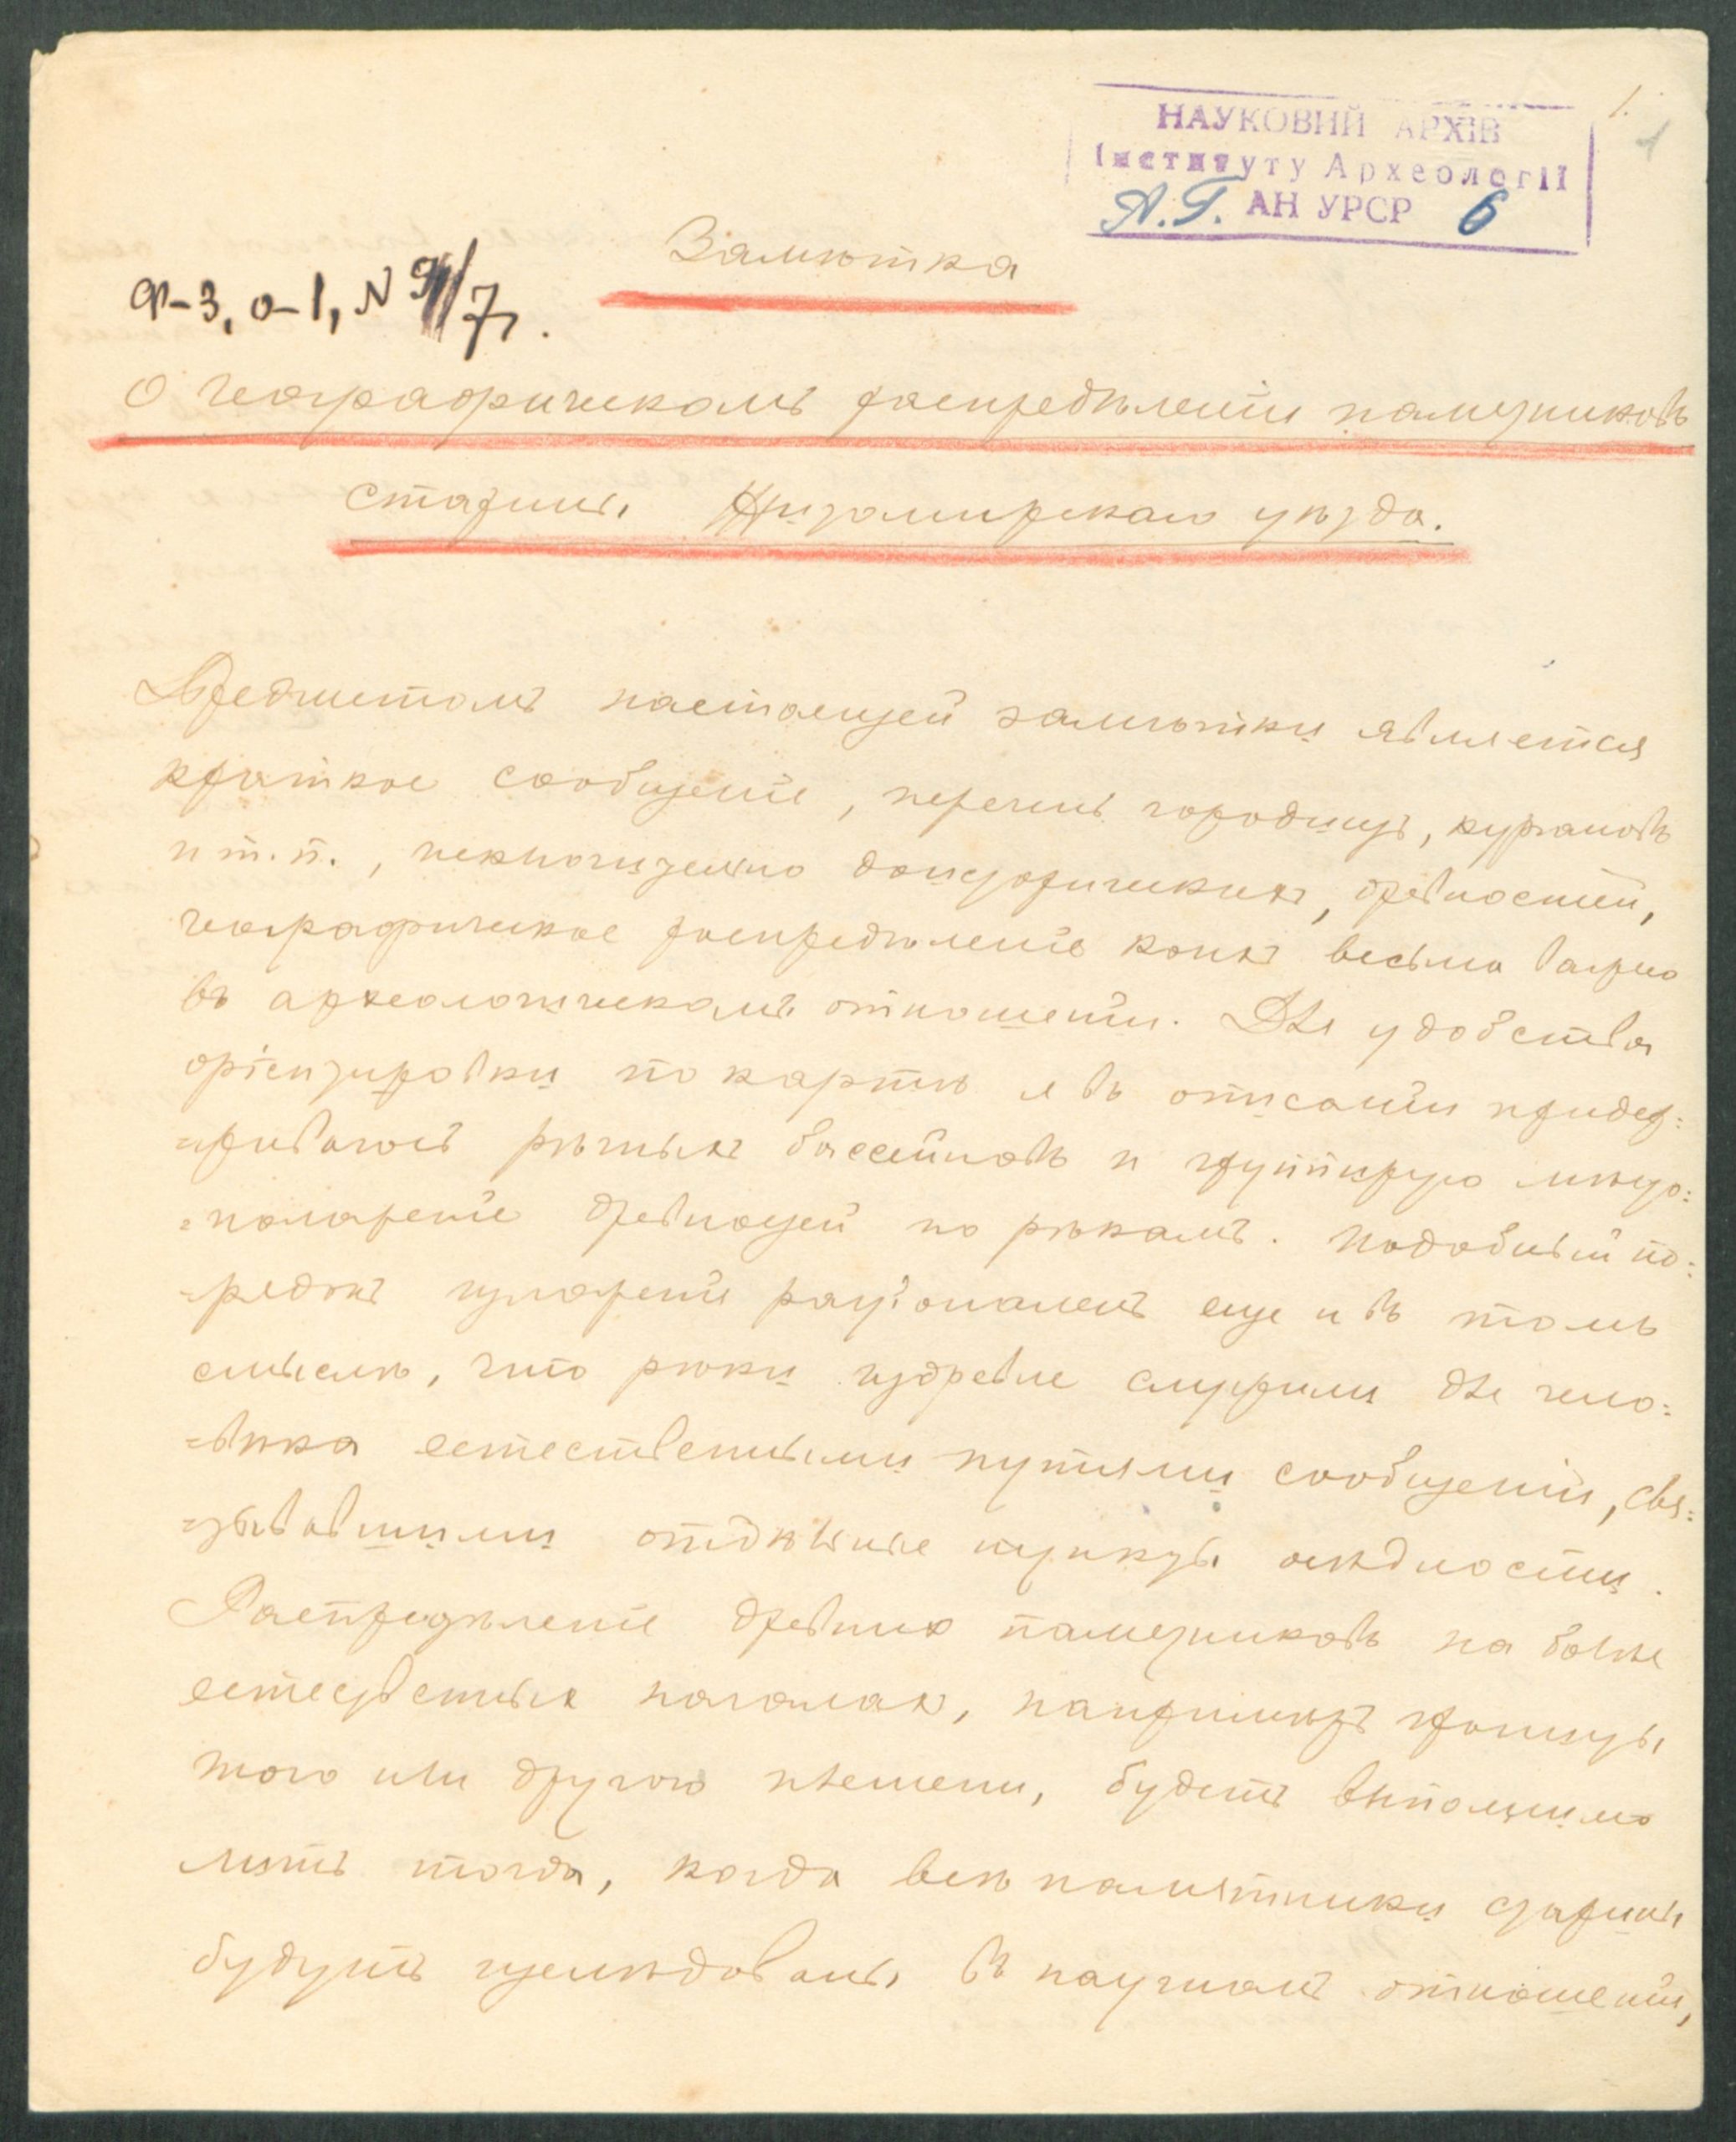 1.
1
НАУКОВИЙ АРХІВ
Інституту Археології
А.Г. АН УРСР 6
Замѣтка
Ф-3, о-1, N /7.
О географическомъ распредѣленіи памятниковъ
старины Житомирскаго уѣзда.
Предметомъ настоящей замѣтки является
краткое сообщеніе, перечень городищъ, кургановъ
и т. п., исключительно доисторическихъ, древностей,
географическое распредѣленіе коихъ весьма важно
въ археологическомъ отношеніи. Для удобства
оріентировки по картѣ я въ описаніи придер=
=живаюсь рѣчныхъ бассейновъ и группирую мѣсто=
=положеніе древностей по рѣкамъ. Подобный по=
=рядокъ изложенія раціоналенъ еще и въ томъ
смыслѣ, что рѣки издревле служили для чело=
=вѣка естественными путями сообщенія, свя=
=зывавшими отдѣльные пункты осѣдлости.
Распредѣленіе древнихъ памятниковъ на болѣе
естественныхъ началахъ, напримѣръ границы
того или другого племени, будетъ выполнимо
лишь тогда, когда всѣ памятники старины
будутъ изслѣдованы въ научномъ отношеніи,